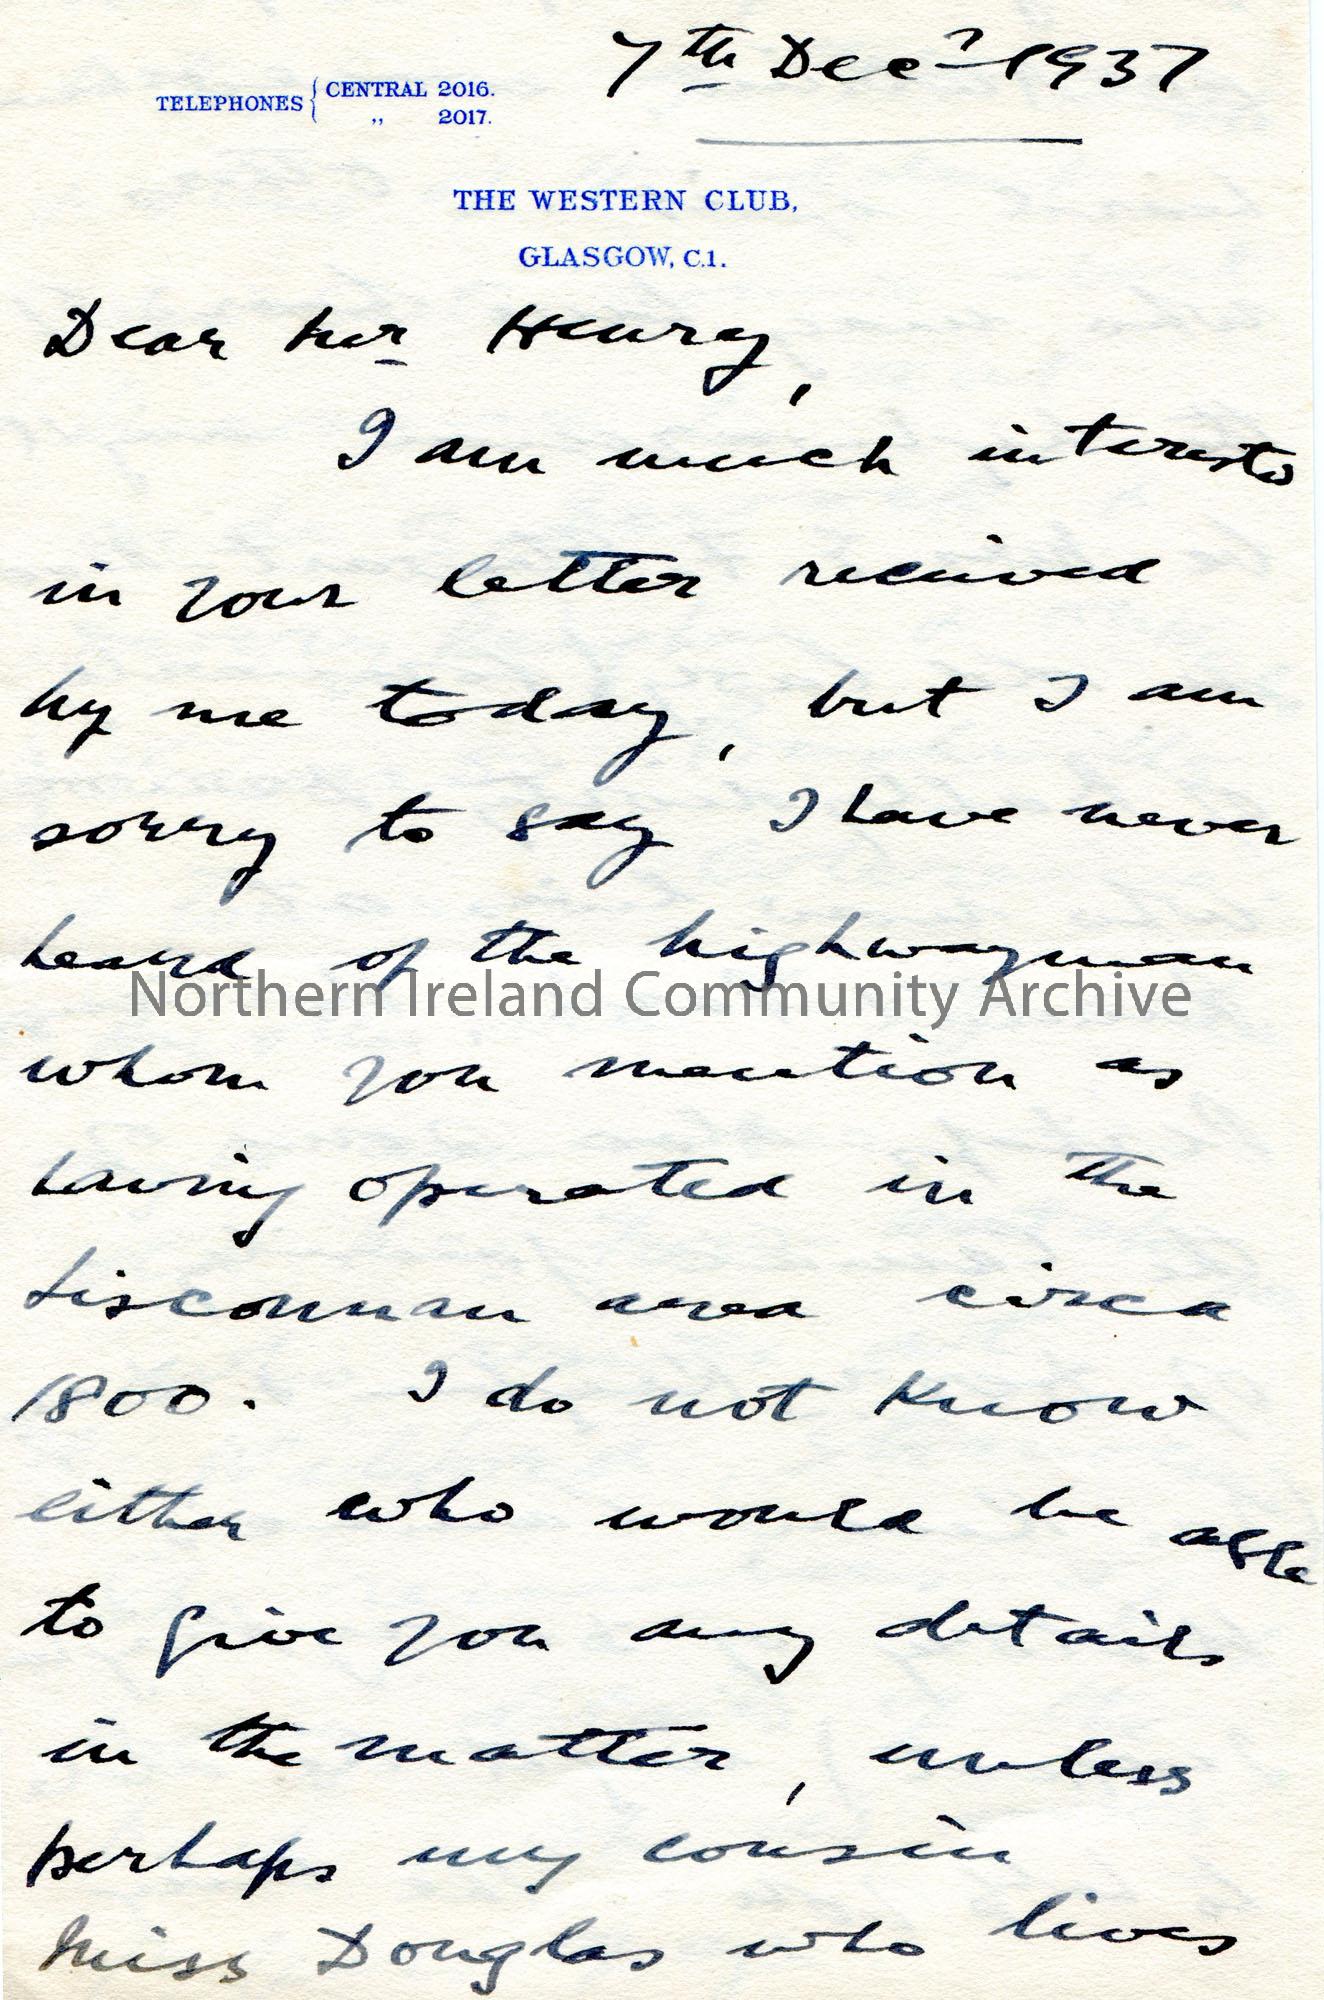 7th Decr 1937
TELEPHONES { CENTRAL 2016.
,, 2017.
THE WESTERN CLUB,
GLASGOW, C.1.
Dear Mr Henry,
I am much interested
in your letter received
by me today, but I am
sorry to say I have never
heard of the highwayman
Northern Ireland Community Archive
whom you mention as
having operated in the
Lisconnan area circa
1800. I do not know
either who would be able
to give you any details
in the matter, unless
perhaps my cousin
Miss Douglas who lives